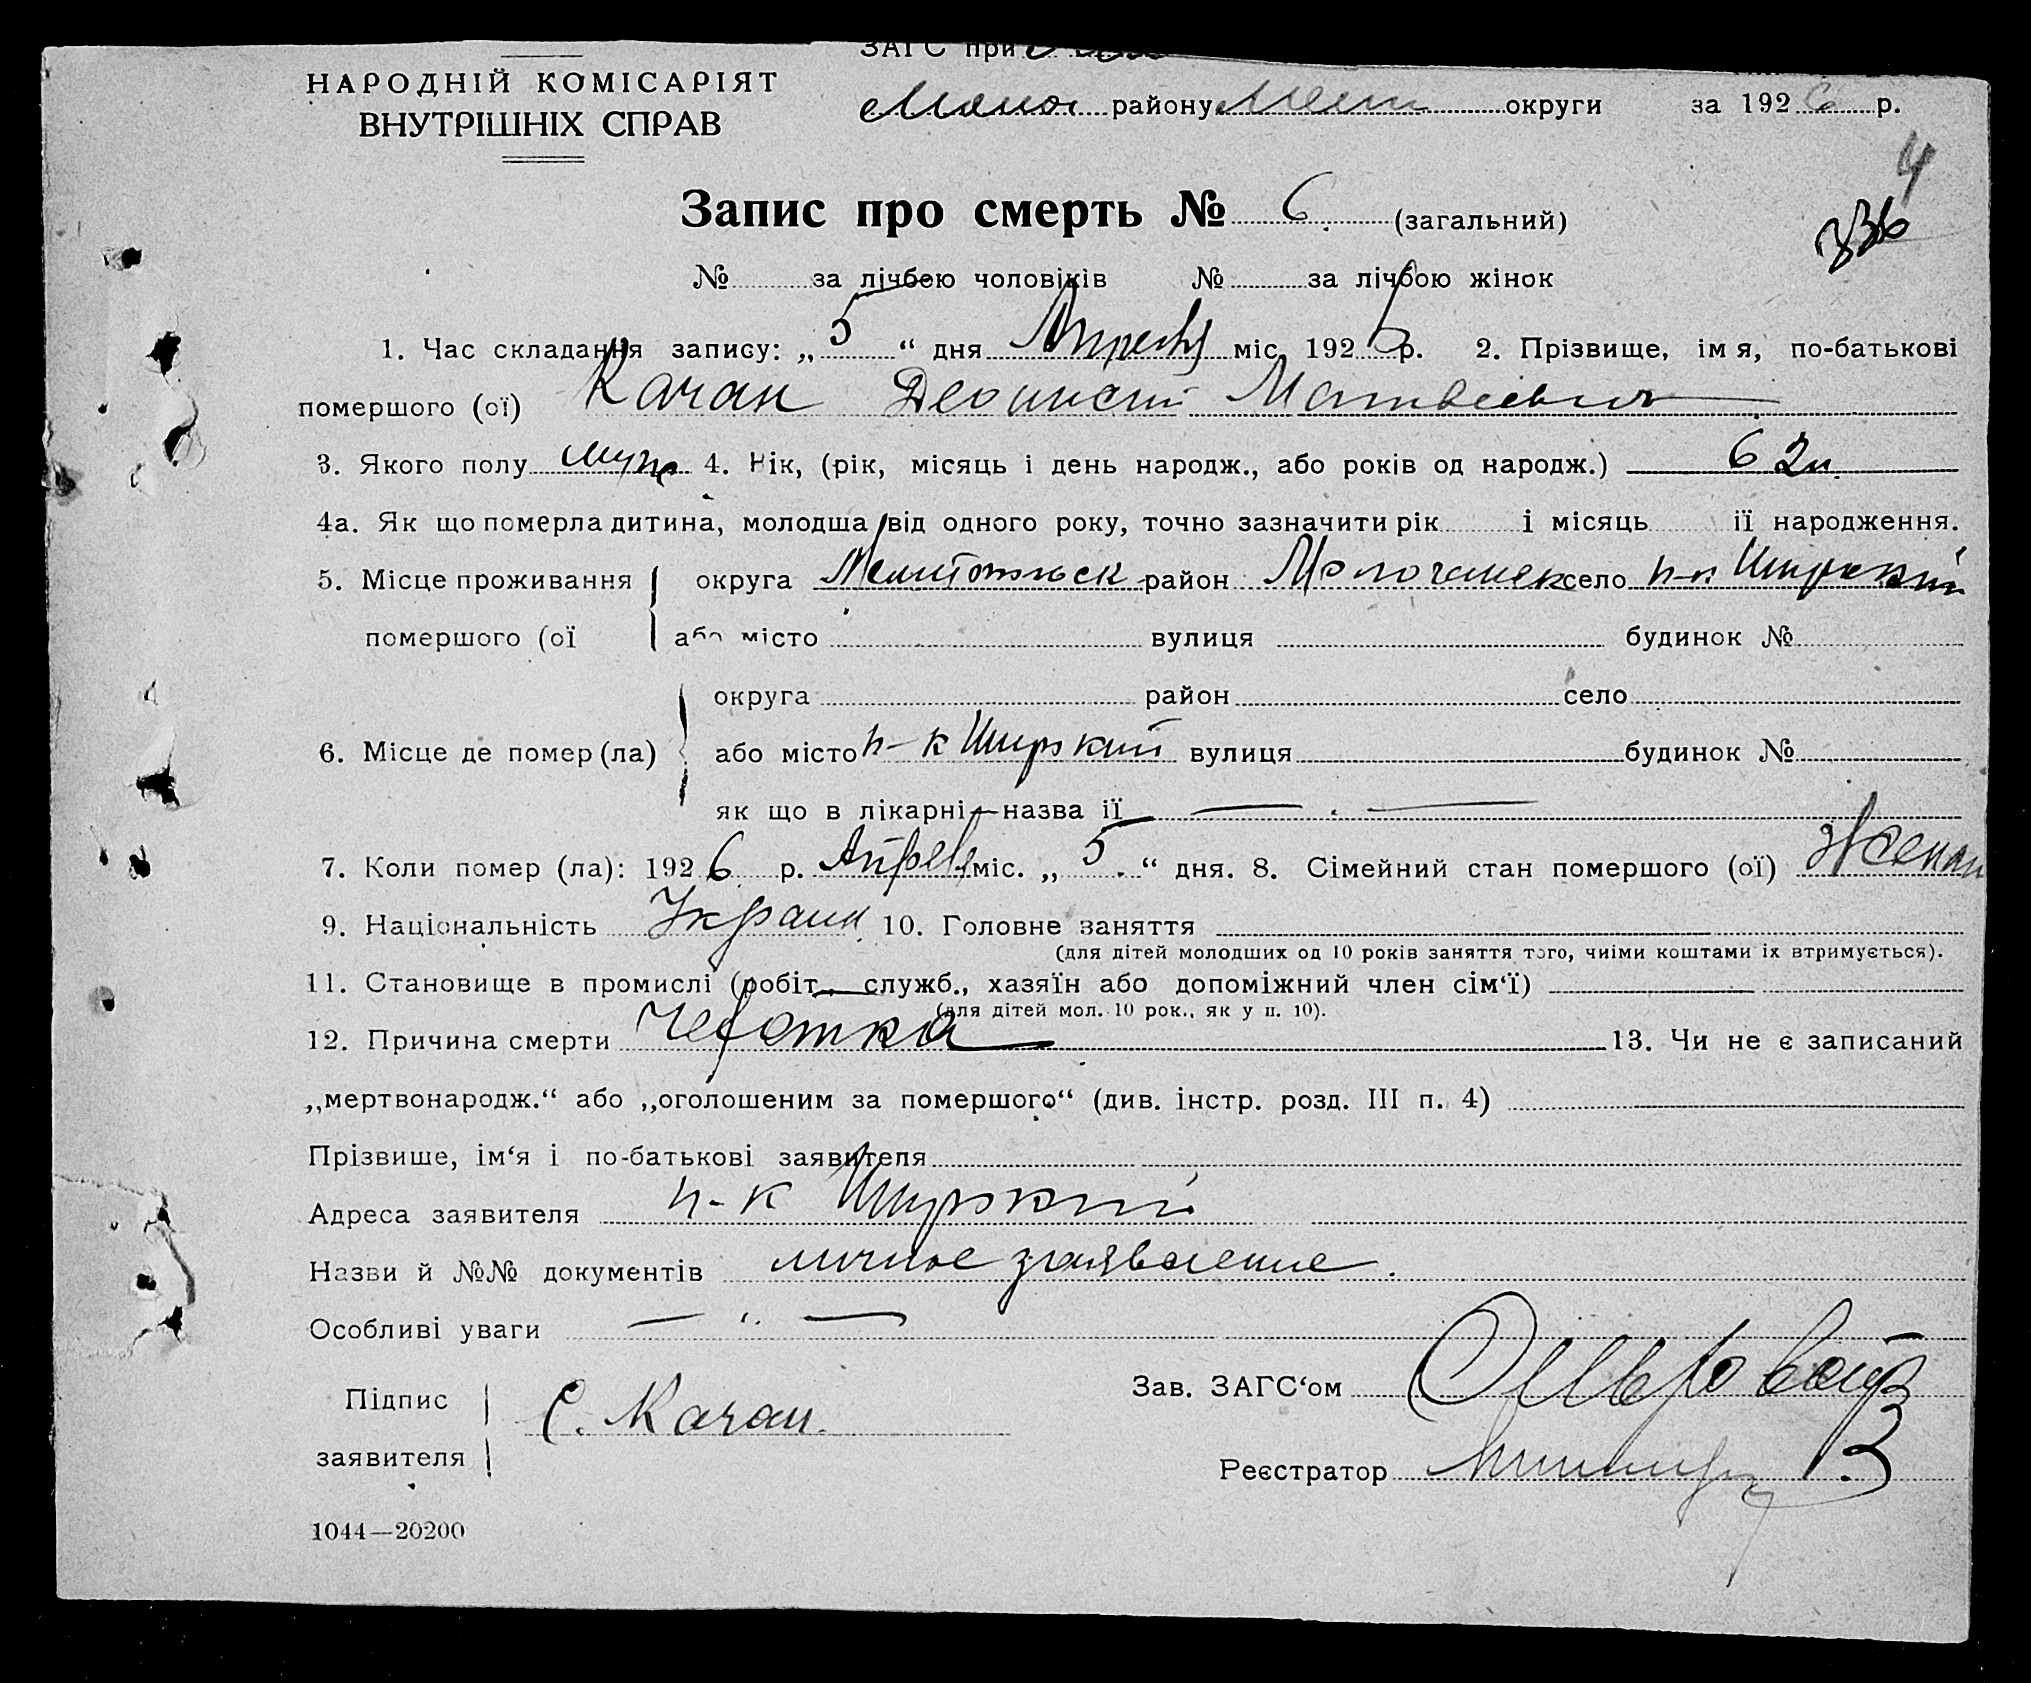 ЗАГС при
НАРОДНІЙ КОМІСАРІЯТ
ВНУТРІШНІХ СПРАВ
району Мелит округи за 1926 р.
4
336
Запис про смерть № 6 (загальний)
№ за лічбою чоловіків № за лічбою жінок
1. Час складання запису: „5“ дня Апреля міс. 1926 р. 2. Прізвище, імя, по-батькові
помершого (ої) Качан Матвеевич
3. Якого полу муж 4. Рік, (рік, місяць і день народж., або років од народж.) 62
4а. Як що померла дитина, молодша від одного року, точно зазначити рік і місяць її народження.
5. Місце проживання округа Мелитопольск район Молочанск село п-к Ширский
помершого (ої або місто вулиця будинок №
округа район село
6. Місце де помер (ла) або місто п-к Ширский вулиця будинок №
як що в лікарні—назва її — . —
7. Коли помер (ла): 1926 р. Апреля міс. „5“ дня. 8. Сімейний стан помершого (ої) Женат
9. Національність Украин 10. Головне заняття
(для дітей молодших од 10 років заняття того, чиїми коштами їх втримується).
11. Становище в промислі (робіт., служб., хазяїн або допоміжний член сім‘ї)
(для дітей мол. 10 рок., як у п. 10).
12. Причина смерти Чехотка 13. Чи не є записаний
„мертвонародж.“ або „оголошеним за помершого“ (див. інстр. розд. III п. 4)
Прізвище, ім‘я і по-батькові заявителя
Адреса заявителя п-к Ширский
Назви й №№ документів личное заявление.
Особливі уваги — “ —
Підпис
заявителя С. Качан.
Зав. ЗАГС‘ом
Реєстратор
1044—20200